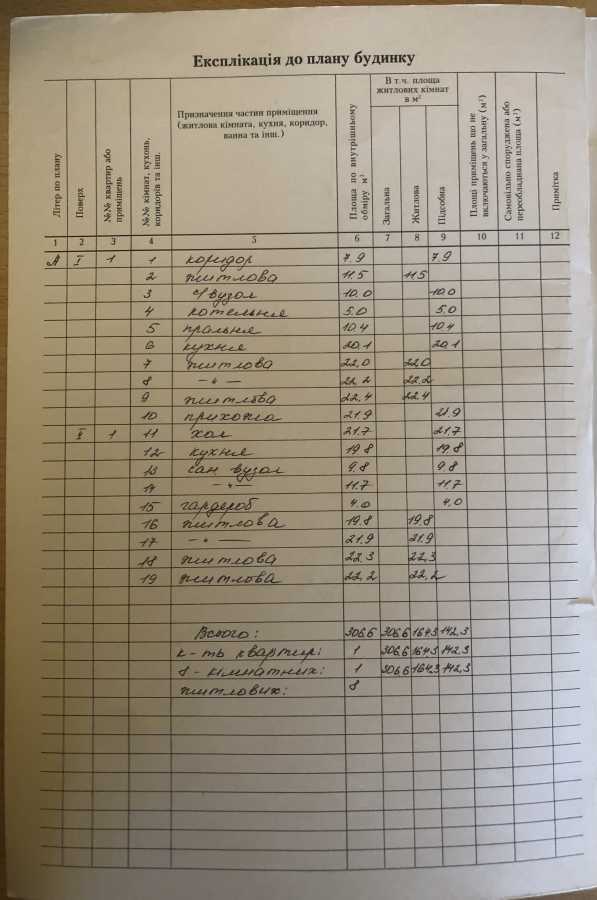 Експлікація до плану будинку
Літер по плану
Поверх
№№ квартир або приміщень
№№ кімнат, кухонь, коридорів та інш.
Призначення частин приміщення
(житлова кімната, кухня, коридор,
ванна та інш.)
Площа по внутрішньому обміру м²
В т.ч. площа
житлових кімнат
в м²
Загальна
Житлова
Підсобна
Площі приміщень що не включаються у загальну (м²)
Самовільно споруджена або переобладнана площа (м²)
Примітка
1 2 3 4 5 6 7 8 9 10 11 12
А І 1 1 коридор 7.9 7.9
2 житлова 11.5 11.5
3 с/вузол 10.0 10.0
4 котельня 5.0 5.0
5 пральня 10.4 10.4
6 кухня 20.1 20.1
7 житлова 22,0 22,0
8 –"– 22,2 22,2
9 житлова 22,4 22.4
10 прихожа 21.9 21.9
ІІ 1 11 хол 21,7 21,7
12 кухня 19.8 19.8
13 сан вузол 9,8 9.8
14 –"– 11.7 11.7
15 гардероб 4.0 4.0
16 житлова 19.8 19.8
17 –"– 21.9 21.9
18 житлова 22,3 22,3
19 житлова 22,2 22,2
Всього: 306,6 306,6 164,3 142,3
к-ть квартир: 1 306,6 164,3 142,3
8 - кімнатних: 1 306,6 164,3 142,3
житлових: 8